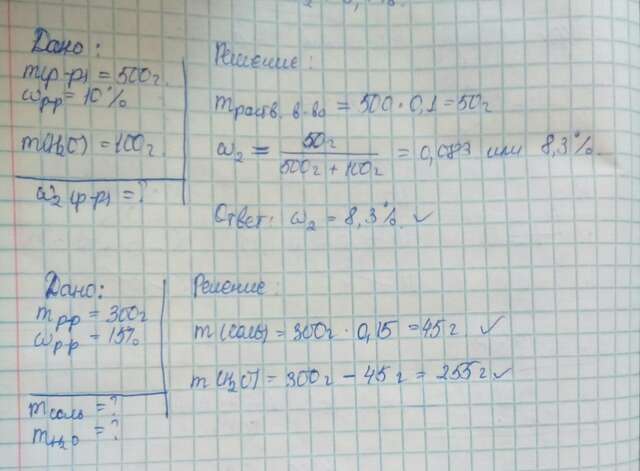 Дано:
m(р-р) = 500г.
ωрр = 10%
m(H₂O) = 100г.
ω₂ (р-р) = ?
Решение:
mраств. в-во = 500 · 0,1 = 50г
ω₂ = 50г / 500г + 100г = 0,083 или 8,3%.
Ответ: ω₂ = 8,3%. ✓
Дано:
mрр = 300г
ωрр = 15%
mсоль = ?
mH₂O = ?
Решение:
m (соль) = 300г · 0,15 = 45г ✓
m (H₂O) = 300г - 45г = 255г ✓